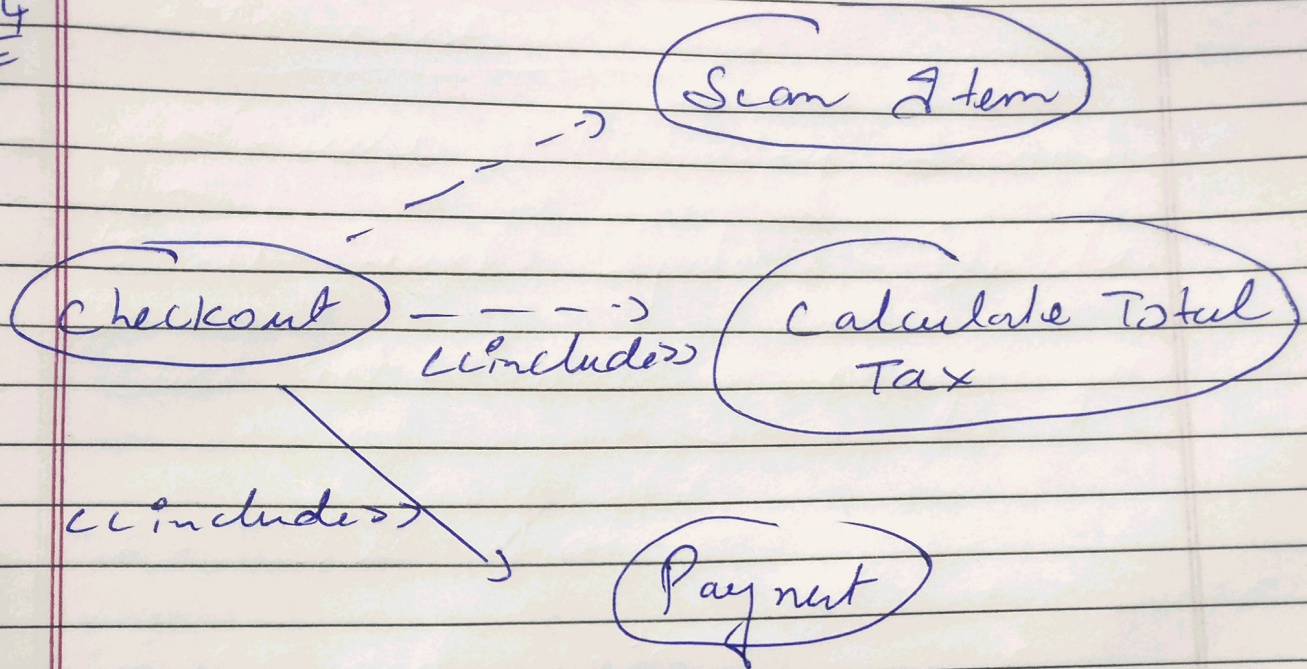 4
Scan Item
Checkout
<<include>>
Calculate Total
Tax
<<include>>
Paynut